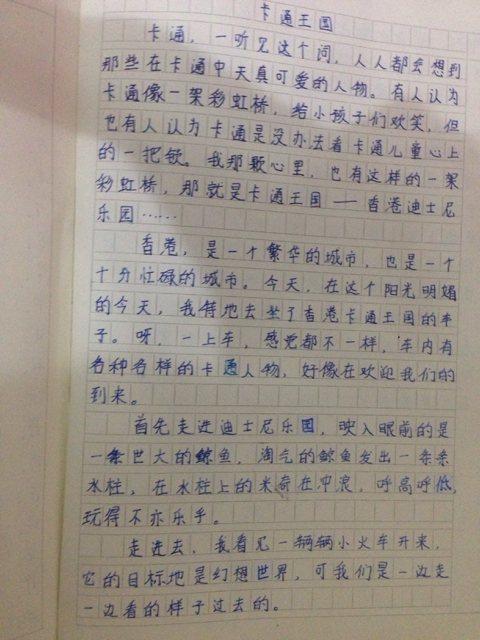 卡通王国
卡通，一听见这个词，人人都会想到
那些在卡通中天真可爱的人物。有人认为
卡通像一架彩虹桥，给小孩子们欢笑，但
也有人认为卡通是没办法看卡通儿童心上
的一把锁。我那颗心里，也有这样的一架
彩虹桥，那就是卡通王国——香港迪士尼
乐园……
香港，是一个繁华的城市，也是一个
十分忙碌的城市。今天，在这个阳光明媚
的今天，我特地去坐了香港卡通王国的车
子。呀，一上车，感觉都不一样，车内有
各种各样的卡通人物，好像在欢迎我们的
到来。
首先走进迪士尼乐园，映入眼前的是
一条世大的鲸鱼，淘气的鲸鱼发出一条条
水柱，在水柱上的米奇在冲浪，呼高呼低，
玩得不亦乐乎。
走进去，我看见一辆辆小火车开来，
它的目标地是幻想世界，可我们是一边走
一边看的样子过去的。